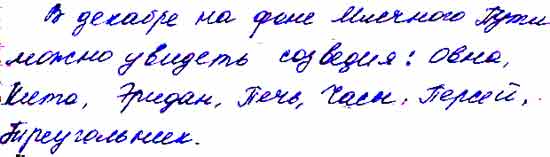 В декабре на фоне Млечного Пути
можно увидеть созведия: Овна,
Кита, Эридан, Печь, Часы, Персей,
Треугольник.